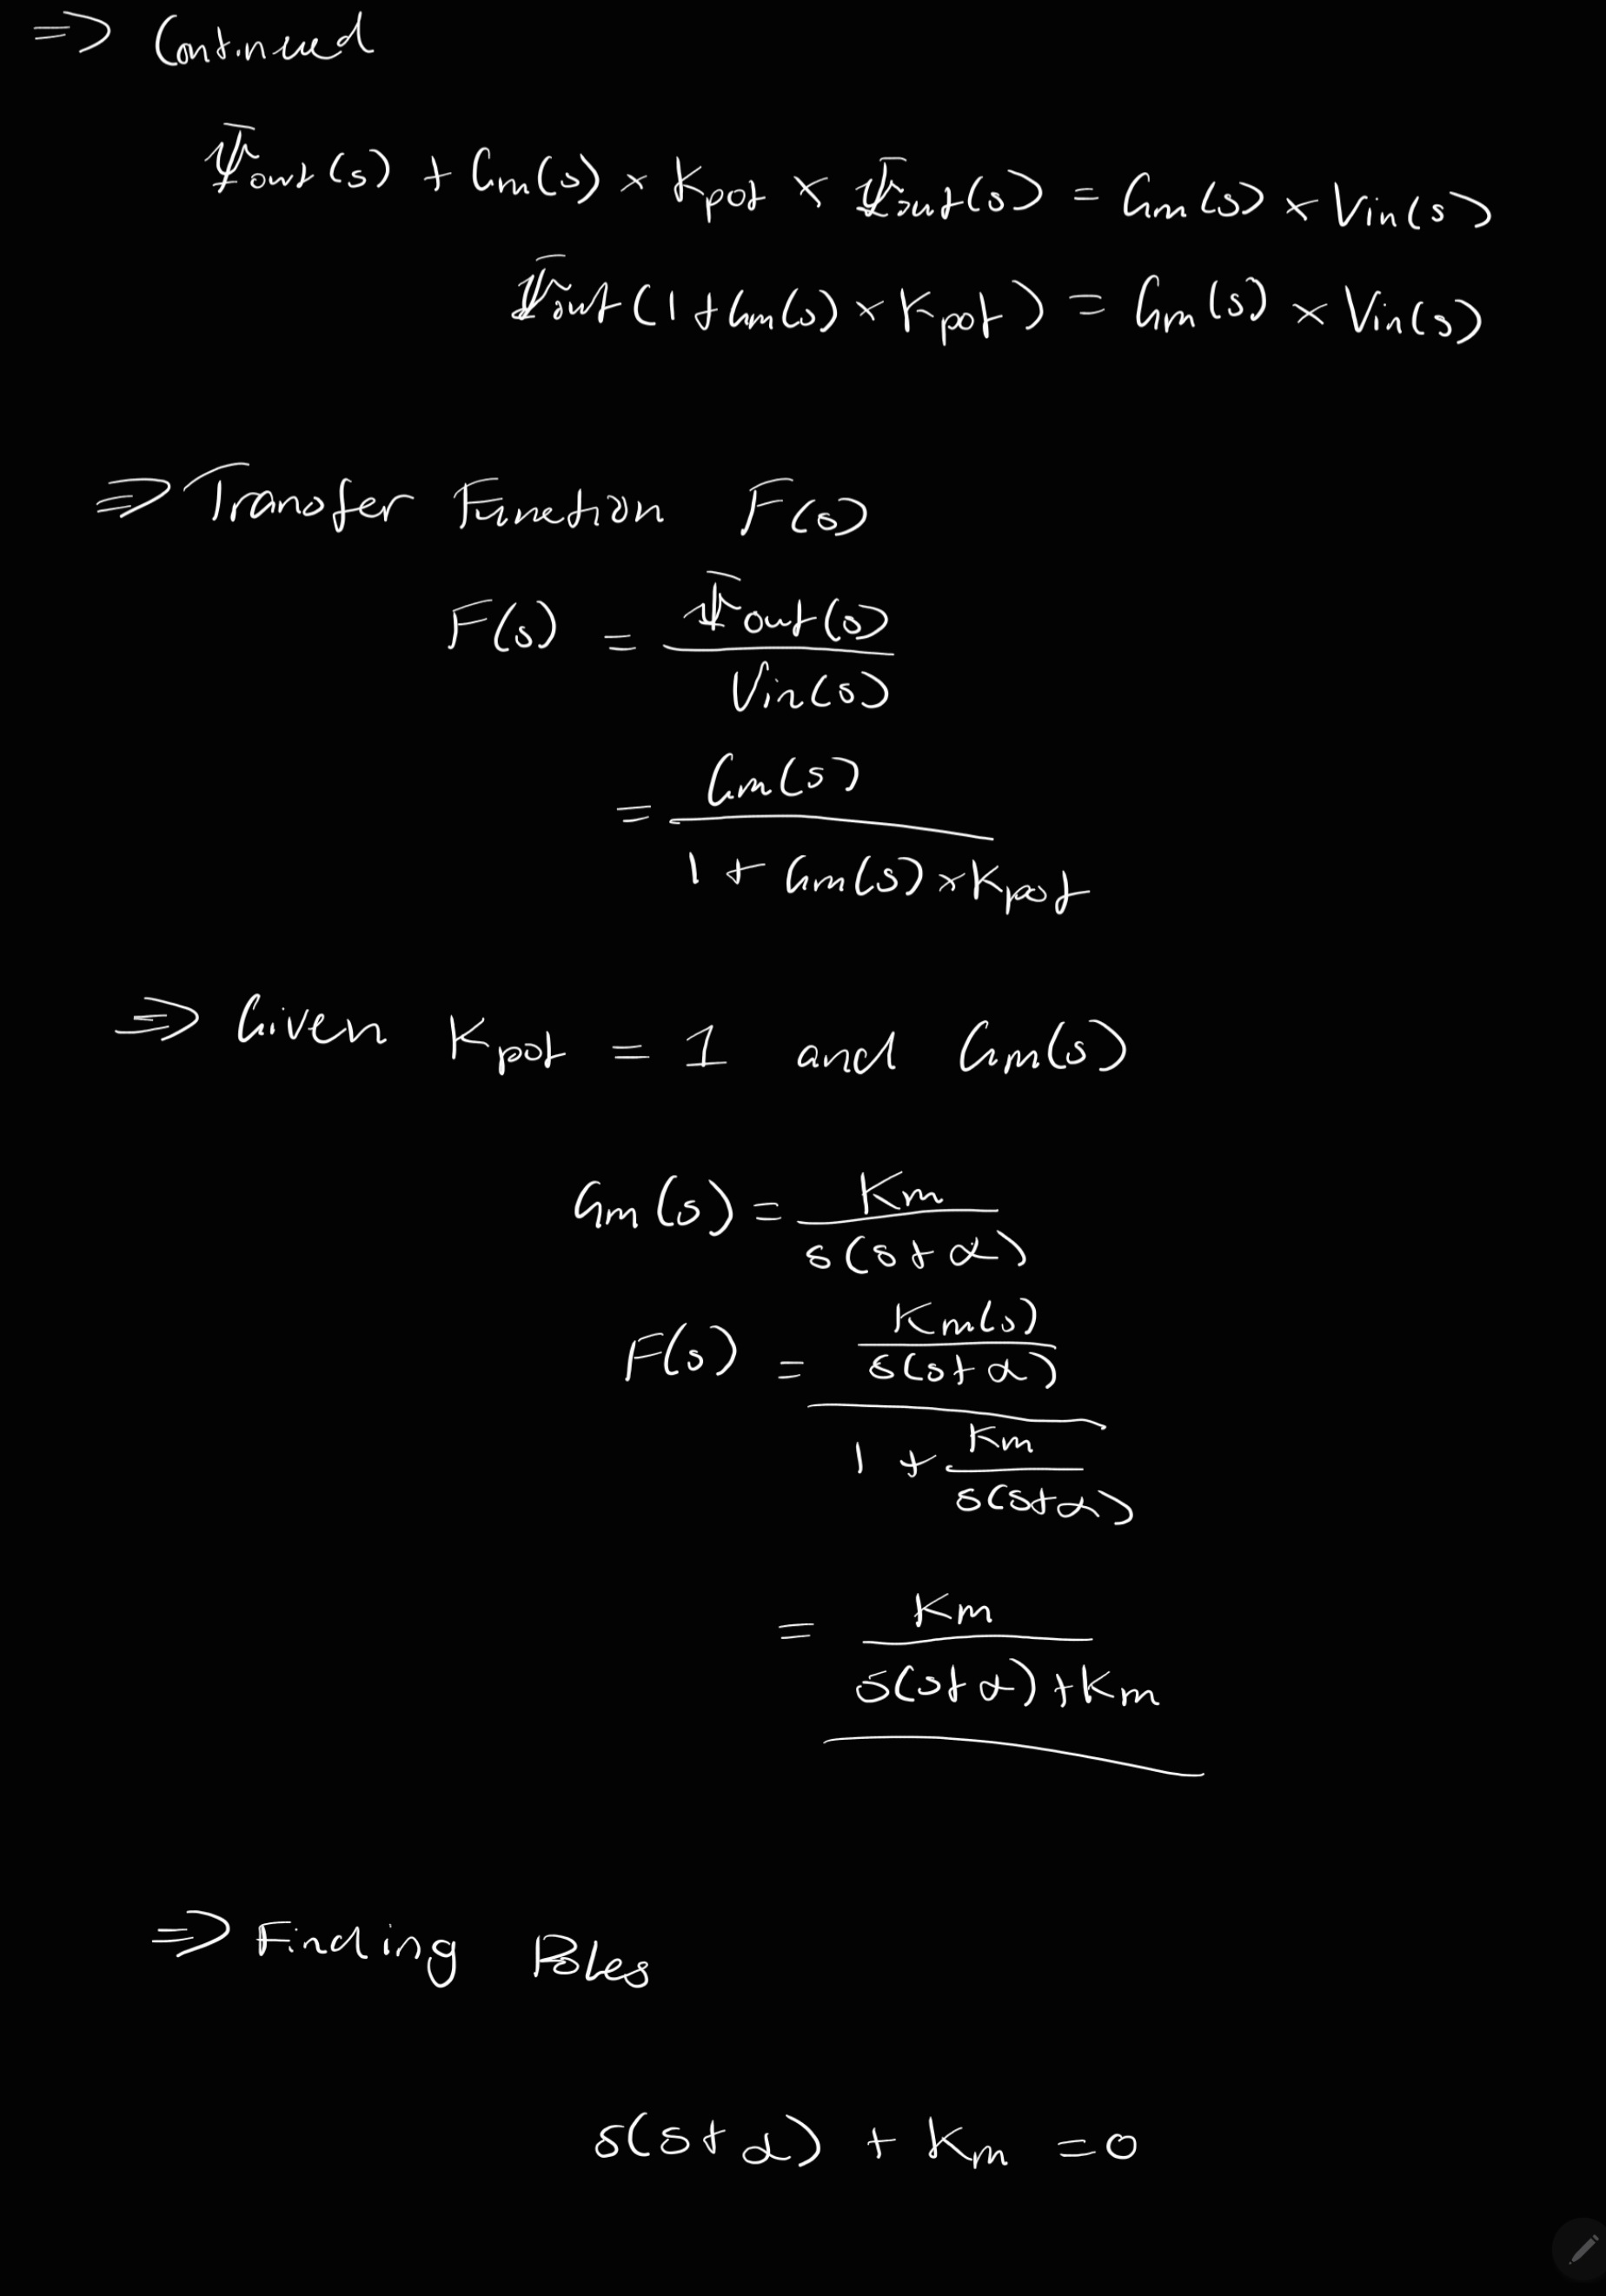 => Continued
Φout(s) + Gm(s) × Kpot × Φout(s) = Gm(s) × Vin(s)
Φout(1 + Gm(s) × Kpot) = Gm(s) × Vin(s)
=> Transfer Function F(s)
F(s) = Φout(s) / Vin(s)
= Gm(s) / 1 + Gm(s) × Kpot
=> Given Kpot = 1 and Gm(s)
Gm(s) = Km / s(s+α)
F(s) = Km(s) / s(s+α) / 1 + Km / s(s+α)
= Km / s(s+α) + Km
=> Finding Poles
s(s+α) + Km = 0